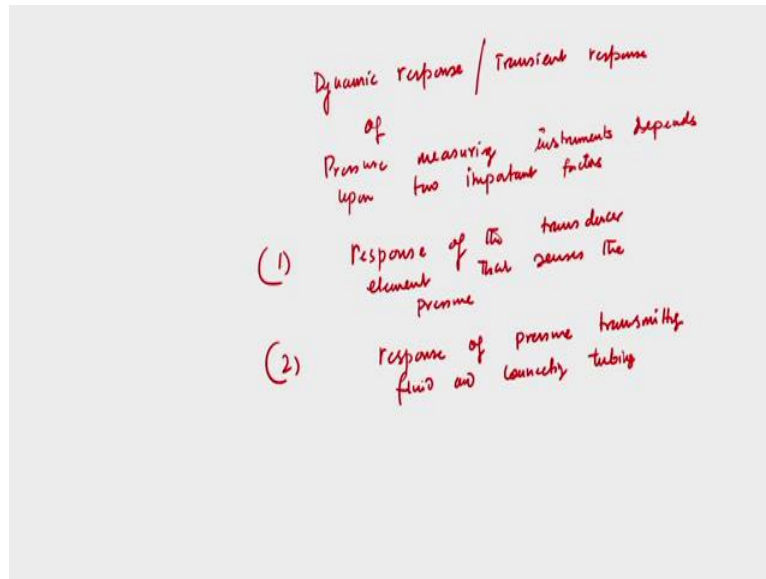 Dynamic response / Transient response
of
Pressure measuring instruments depends
upon two important factors
(1) response of the transducer
element that senses the
pressure
(2) response of pressure transmitting
fluid and connecting tubing